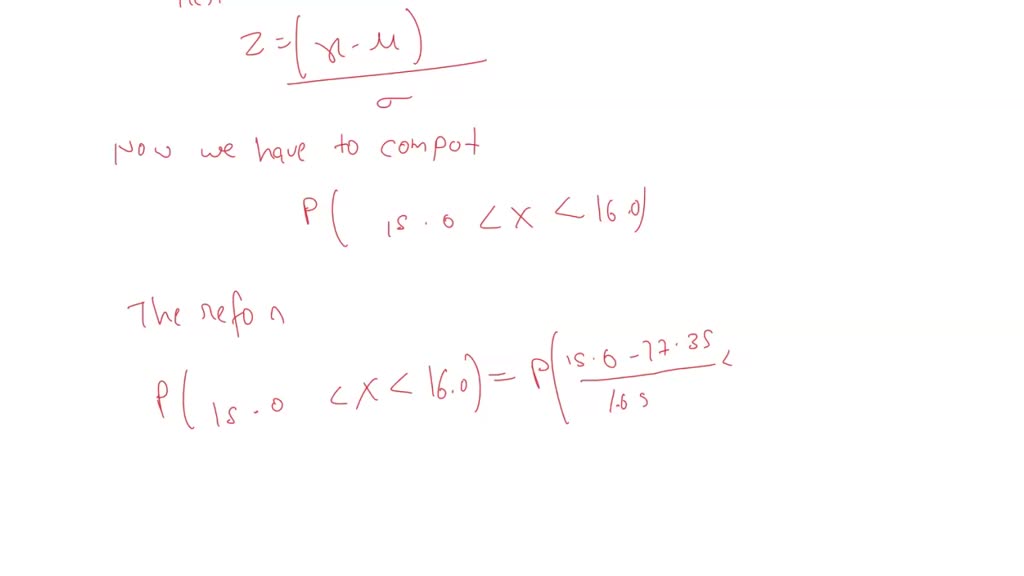 Z = (x - μ)
σ
Now we have to compot
P( 15.0 < X < 16.0)
The refo r
P( 15.0 < X < 16.0) = P( 15.0 - 17.35 <
1.65